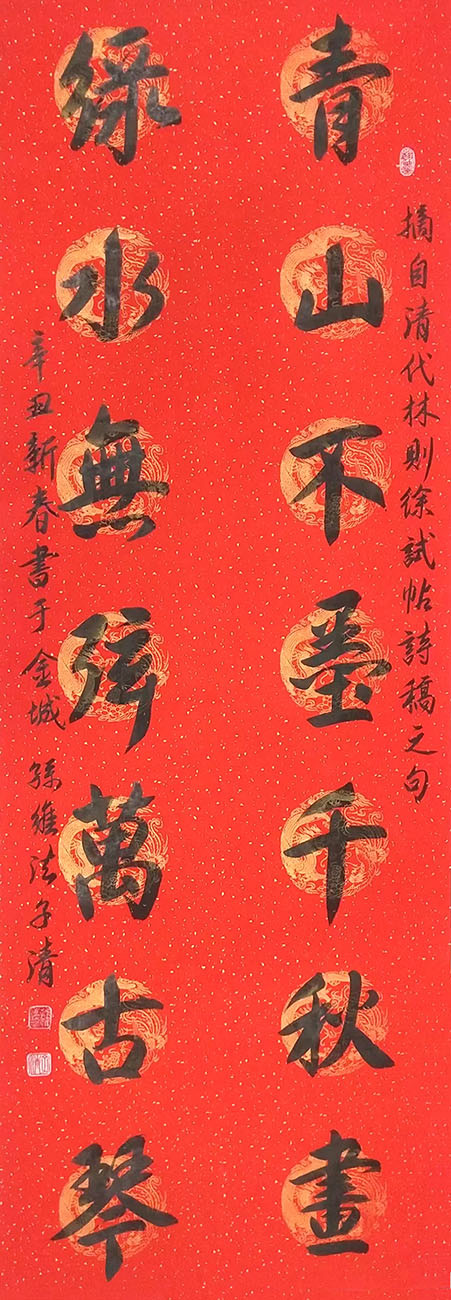 摘自清代林則徐試帖詩稿之句
青山不墨千秋畫
綠水無弦萬古琴
辛丑新春書于金城 孫維法子清